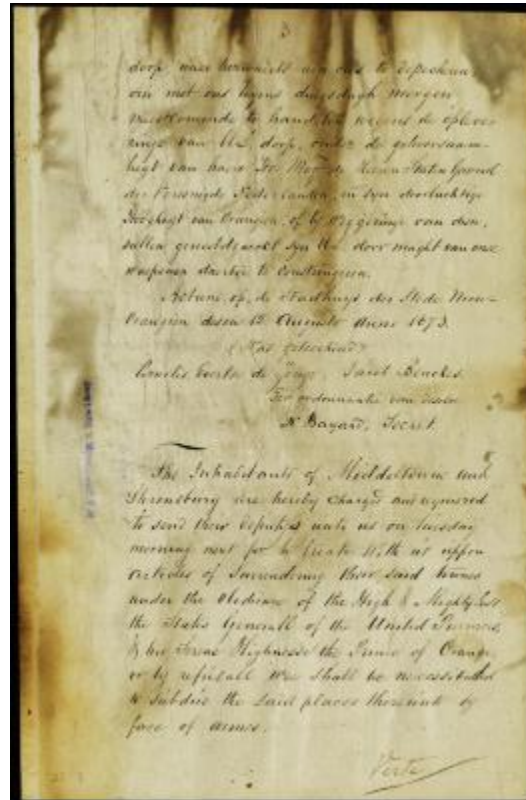 3
dorp naer herwaerts aen ons te depecheren
om met ons tegens dingsdagh morgen
naestcomende te handelen wegens de opleve
ringe van Ue dorp, onder de gehoorsaem
heyt van haer Ho: Mog: de Heeren Staten Generael
der Vereenigde Nederlanden, en syn doorluchtige
Hoocheyt van Orangien, of by weygeringe van dien,
sullen genootsaeckt syn Ue door maght van onse
wapenen daertoe te constringeren.
Actum op de Stadhuys der Stede Nieu-
Orangien desen 12 Augusto Anno 1673.
(Was geteekend)
Cornelis Evertse de Jonge, Jacob Benckes.
Ter ordonnantie van deselve
N. Bayard, Secret.
The Inhabitants of Middeltowne and
Shrousbury are hereby charged and required
to send their deputies unto us on tuesday
morning next for to treate with us uppon
articles of Surrendring their said townes
under the obedience of the High & Mighty Lords
the States Generall of the United Provinces,
& his Serene Highnesse the Prince of Orange,
or by refusall wee shall be necessitated
to subdue the said places thereunto by
force of armes.
Verte